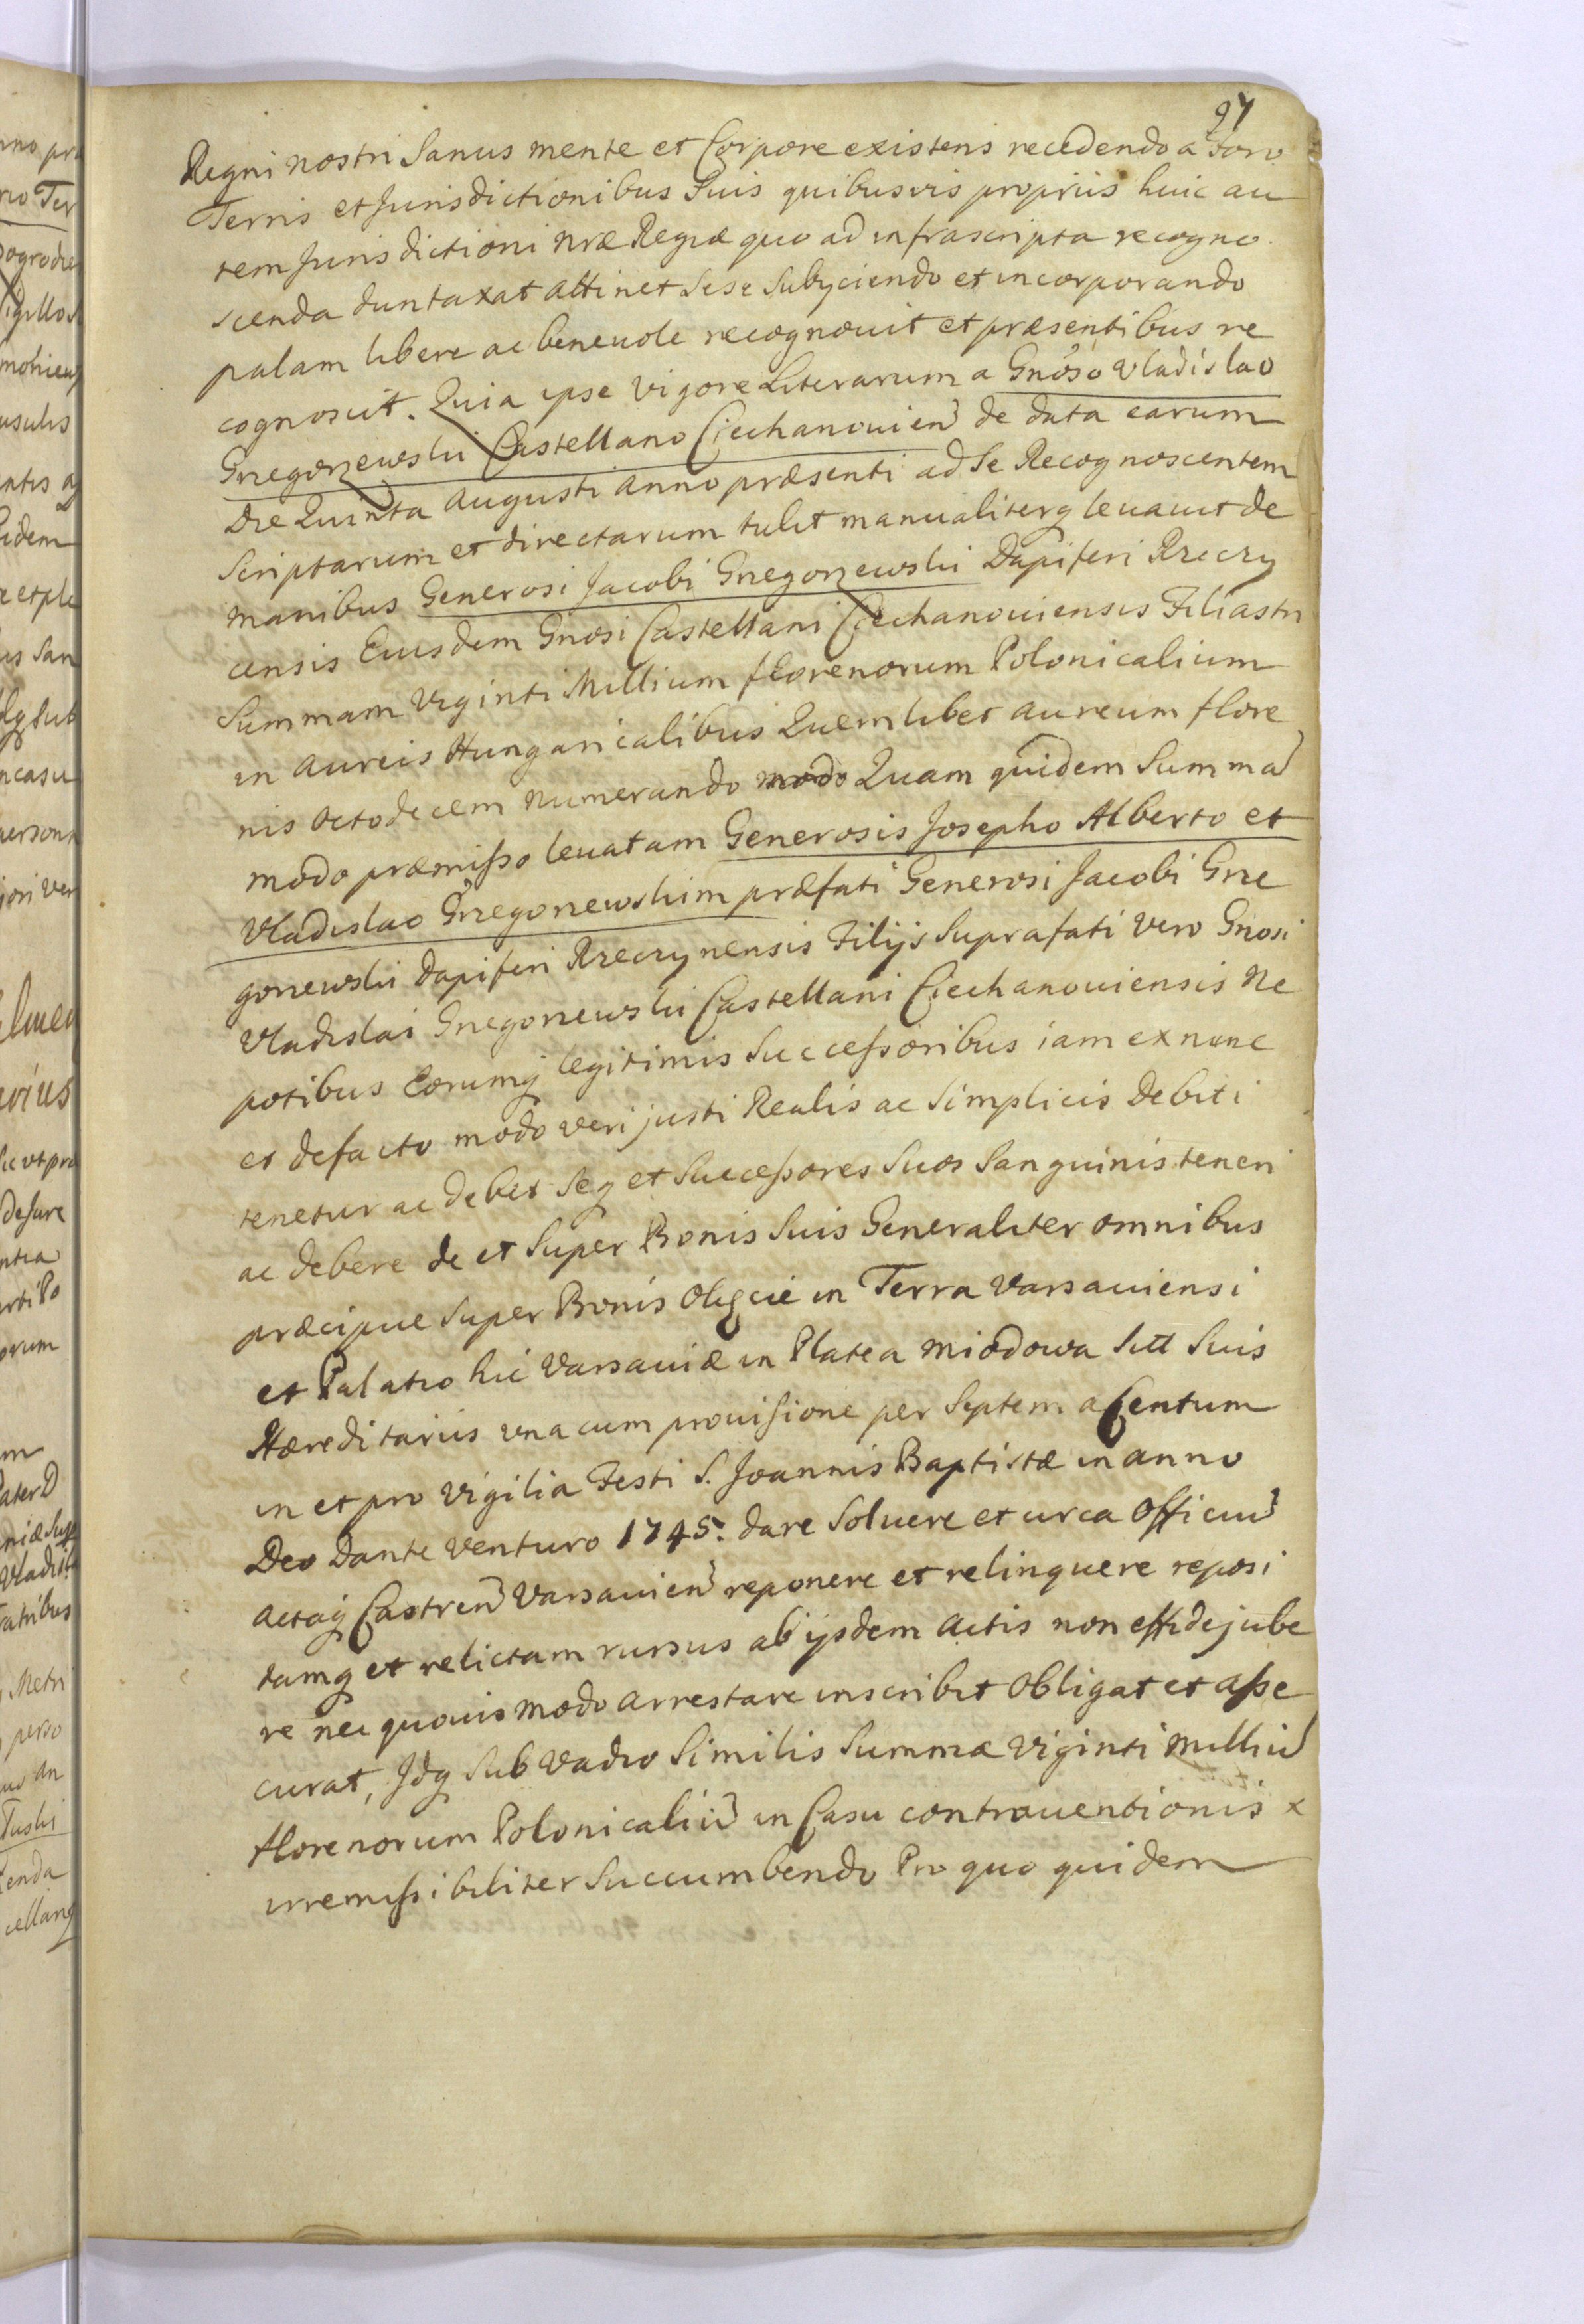 97
Regni nostri Sanus mente et Corpore existens recedendo a Foro
Terris et Jurisdictionibus Suis quibusvis proprijs huic au
tem Jurisdictioni nræ Regiæ quo ad infrascripta recogno
scenda duntaxat attinet Sese Subyciendo et incorporando
palam libere ac beneuole recognouit et præsentibus re
cognoscit. Quia ipse vigore Literarum a Gnoso Vladislao
Grzegorzewski Castellano Ciechanouien de data earum
Die Quinta Augusti Anno præsenti ad Se Recognoscentem
Scriptarum et directarum tulit manualiterq leuauit de
manibus Generosi Jacobi Grzegorzewski Dapiferi Rzeczy
censis Eiusdem Gnosi Castellani Ciechanouiensis Filiastri
Summam Viginti Millium florenorum Polonicalium
in Aureis Hungaricalibus Quemlibet aureum flore
nis Octodecem numerando modo Quam quidem Summa
modo præmisso leuatam Generosis Josepho Alberto et
Vladislao Grzegorzewskim præfati Generosi Jacobi Grze
gorzewski Dapiferi Rzeczynensis Filijs Suprafati vero Gnosi
Vladislai Grzegorzewski Castellani Ciechanouiensis Ne
potibus Eorumq legitimis Successoribus iam ex nunc
et defacto modo veri justi Realis ac Simplicis Debiti
tenetur ac debet Seq et Successores Suos Sanguinis teneri
ac debere de et Super Bonis Suis Generaliter omnibus
præcipue Super Bonis Olszcie in Terra Varsauiensi
et Palatio hic Varsauiæ in Platea Miodowa Sitt Suis
Hæreditarijs una cum prouisione per Septem a Centum
in et pro Vigilia Festi S. Joannis Baptistæ in anno
Deo Dante Venturo 1745. dare Soluere et circa Officiu
Actaq Castren Varsauien reponere et relinquere reposi
tamq et relictam rursus ab ijsdem Actis non effidejube
re nec quouis modo arrestare inscribit Obligat et asse
curat, Jdq Sub Vadio Similis Summæ Viginti Milliu
florenorum Polonicaliu in Casu contrauentionis x
irremissibiliter Succumbendo Pro quo quidem